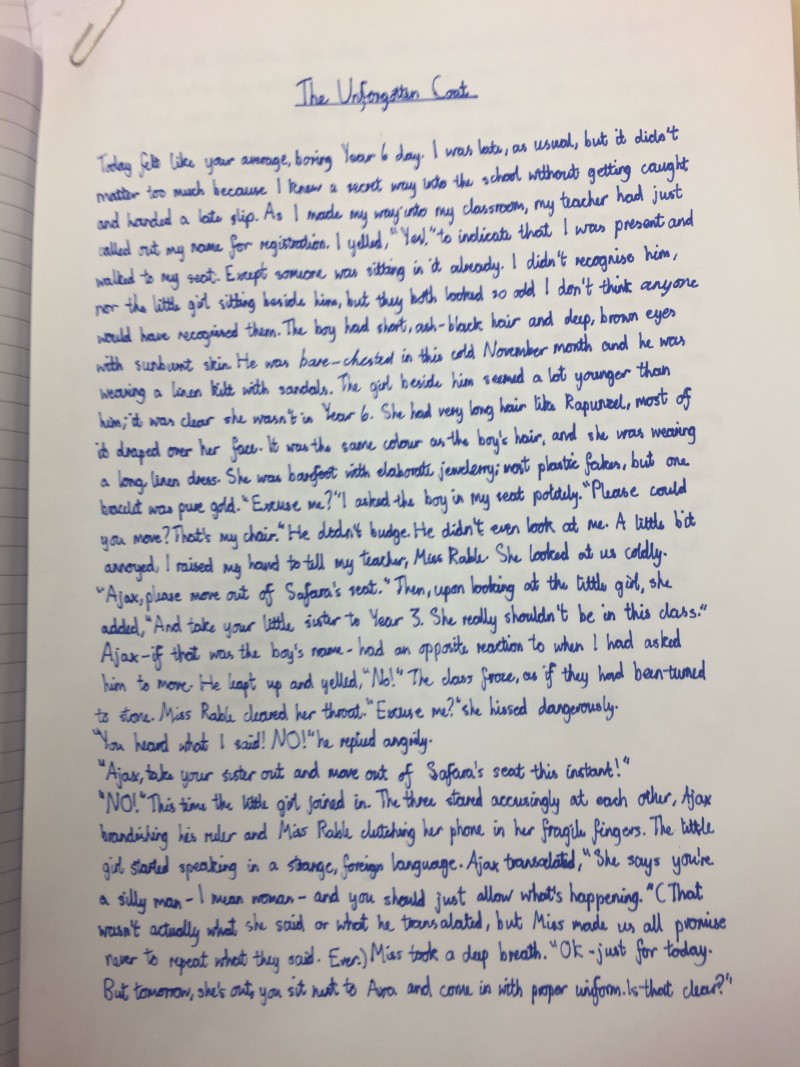 The Unforgotten Coat
Today felt like your average, boring Year 6 day. I was late, as usual, but it didn't
matter too much because I knew a secret way into the school without getting caught
and handed a late slip. As I made my way into my classroom, my teacher had just
called out my name for registration. I yelled, "Yes!" to indicate that I was present and
walked to my seat. Except someone was sitting in it already. I didn't recognise him,
nor the little girl sitting beside him, but they both looked so odd I don't think anyone
would have recognised them. The boy had short, ash-black hair and deep, brown eyes
with sunburnt skin. He was bare-chested in this cold November month and he was
wearing a linen kilt with sandals. The girl beside him seemed a lot younger than
him; it was clear she wasn't in Year 6. She had very long hair like Rapunzel, most of
it draped over her face. It was the same colour as the boy's hair, and she was wearing
a long, linen dress. She was barefoot with elaborate jewellery; most plastic fakes, but one
bracelet was pure gold. "Excuse me?" I asked the boy in my seat politely. "Please could
you move? That's my chair." He didn't budge. He didn't even look at me. A little bit
annoyed, I raised my hand to tell my teacher, Miss Rable. She looked at us coldly.
"Ajax, please move out of Safara's seat." Then, upon looking at the little girl, she
added, "And take your little sister to Year 3. She really shouldn't be in this class."
Ajax - if that was the boy's name - had an opposite reaction to when I had asked
him to move. He leapt up and yelled, "No!" The class froze, as if they had been turned
to stone. Miss Rable cleared her throat. "Excuse me?" she hissed dangerously.
"You heard what I said! NO!" he replied angrily.
"Ajax, take your sister out and move out of Safara's seat this instant!"
"NO!" This time the little girl joined in. The three stared accusingly at each other, Ajax
brandishing his ruler and Miss Rable clutching her phone in her fragile fingers. The little
girl started speaking in a strange, foreign language. Ajax transalated, "She says you're
a silly man - I mean woman - and you should just allow what's happening." (That
wasn't actually what she said or what he transalated, but Miss made us all promise
never to repeat what they said. Ever.) Miss took a deep breath. "Ok - just for today.
But tomorrow, she's out, you sit next to Ava and come in with proper uniform. Is that clear?"